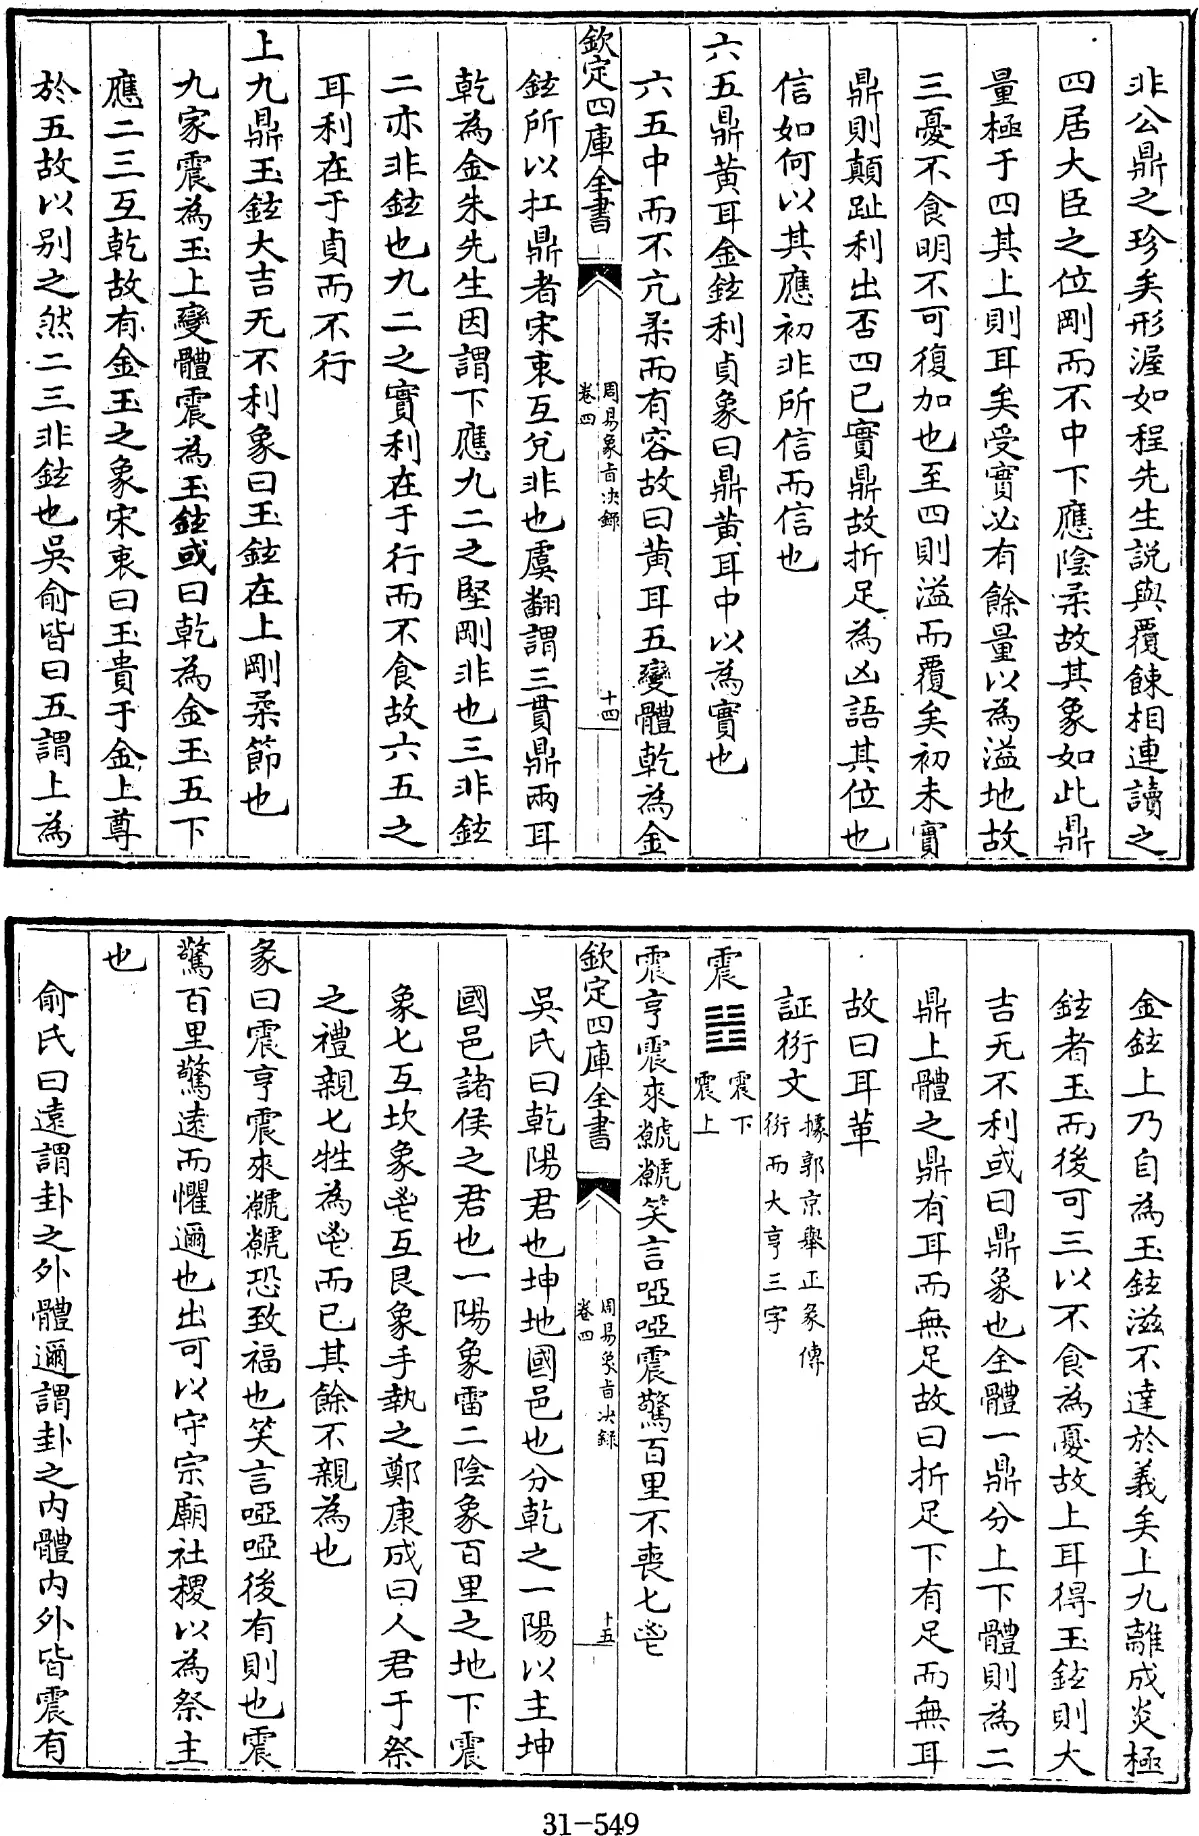 非公鼎之珍矣形渥如程先生説與覆餗相連讀之
四居大臣之位剛而不中下應陰柔故其象如此鼎
量極于四其上則耳矣受實必有餘量以為溢地故
三憂不食明不可復加也至四則溢而覆矣初未實
鼎則顛趾利出否四已實鼎故折足為凶語其位也
信如何以其應初非所信而信也
六五鼎黃耳金鉉利貞象曰鼎黃耳中以為實也
六五中而不亢柔而有容故曰黃耳五變體乾為金
欽定四庫全書
周易象旨决錄
卷四
十四
鉉所以扛鼎者宋衷互兌非也虞翻謂三貫鼎兩耳
乾為金朱先生因謂下應九二之堅剛非也三非鉉
二亦非鉉也九二之實利在于行而不食故六五之
耳利在于貞而不行
上九鼎玉鉉大吉无不利象曰玉鉉在上剛柔節也
九家震為玉上變體震為玉鉉或曰乾為金玉五下
應二三互乾故有金玉之象宋衷曰玉貴于金上尊
於五故以别之然二三非鉉也吳俞皆曰五謂上為
金鉉上乃自為玉鉉滋不達於義矣上九離成炎極
鉉者玉而後可三以不食為憂故上耳得玉鉉則大
吉无不利或曰鼎象也全體一鼎分上下體則為二
鼎上體之鼎有耳而無足故曰折足下有足而無耳
故曰耳革
証衍文據郭京舉正彖傳衍而大亨三字
震䷲震下震上
震亨震來虩虩笑言啞啞震驚百里不喪匕鬯
欽定四庫全書
周易象旨决錄
卷四
十五
吳氏曰乾陽君也坤地國邑也分乾之一陽以主坤
國邑諸侯之君也一陽象雷二陰象百里之地下震
象匕互坎象鬯互艮象手執之鄭康成曰人君于祭
之禮親匕牲為鬯而已其餘不親為也
彖曰震亨震來虩虩恐致福也笑言啞啞後有則也震
驚百里驚遠而懼邇也出可以守宗廟社稷以為祭主
也
俞氏曰遠謂卦之外體邇謂卦之内體内外皆震有
31-549